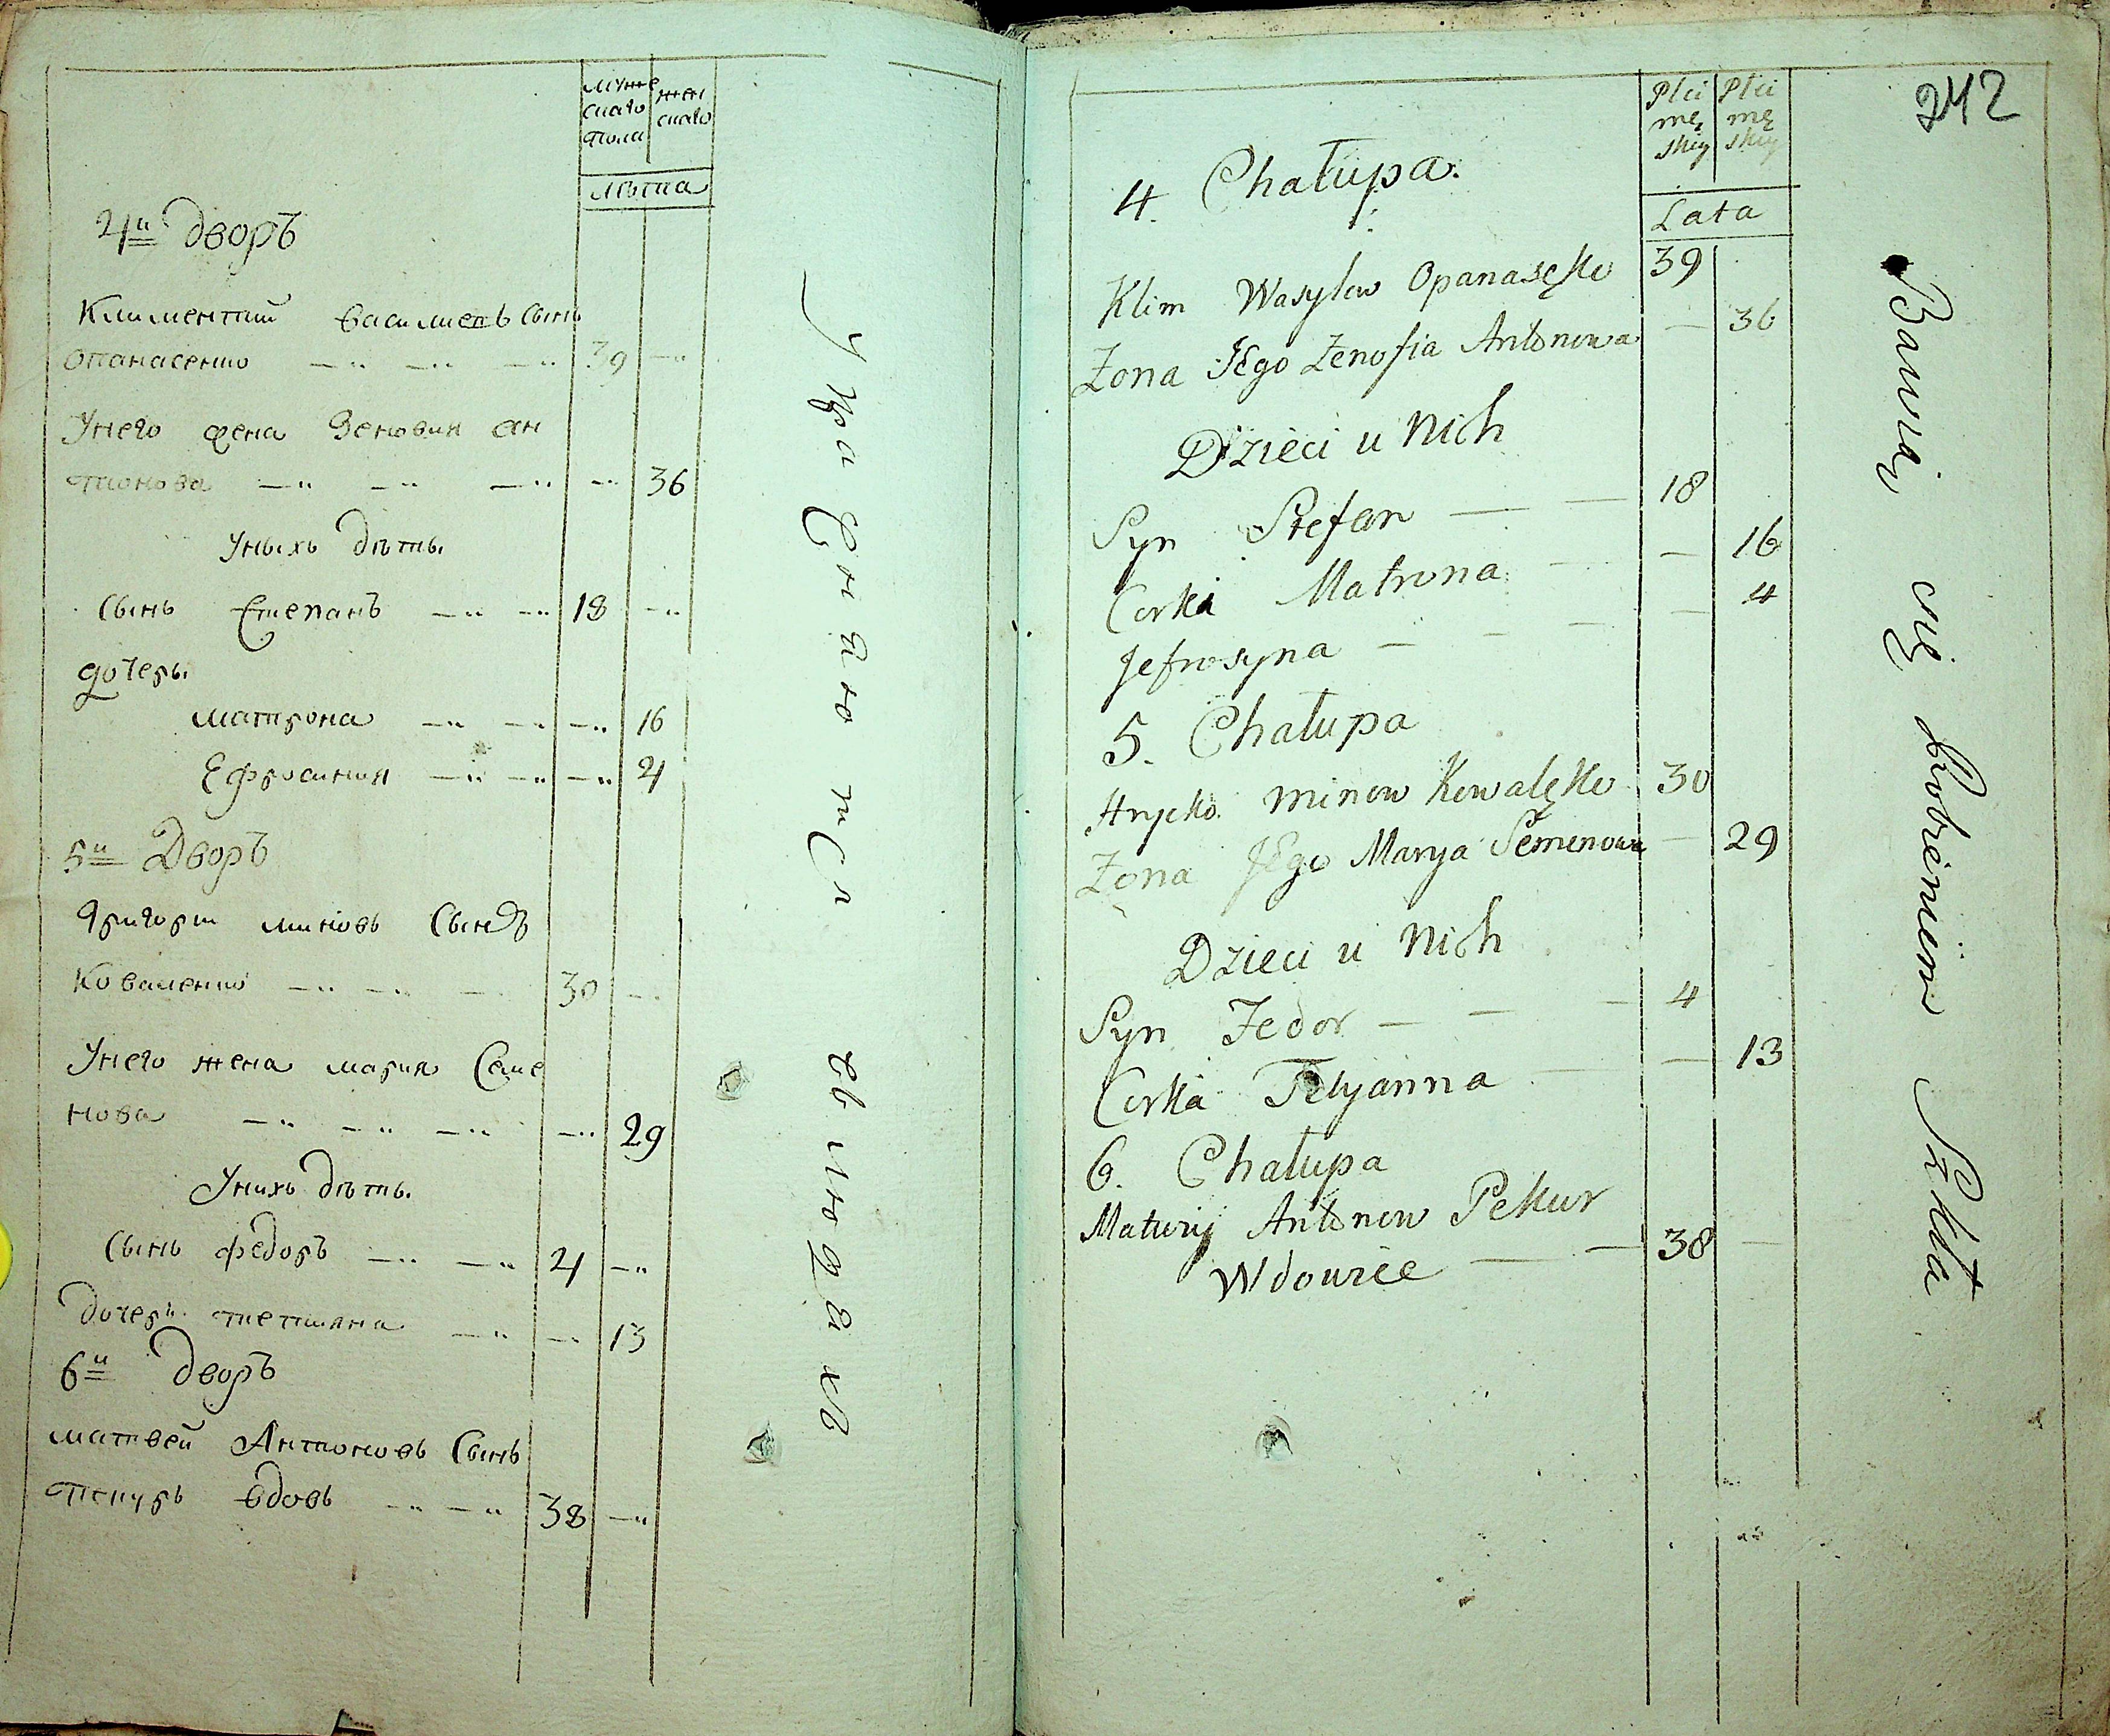 муже
скаго
пола
жен
скаго
лѣта
4й дворъ
Климентий василиевъ сынъ
опанасенко 39
Унего жена Зеновия ан
тонова 36
Уныхъ дѣти
Сынъ Степанъ 18
дочерь
матрона 16
Ефросиния 4
5й Дворъ
григорий миновъ Сынъ
коваленко 30
Унего жена мария Семе
нова 29
Унихъ дѣти
Сынъ федоръ 4
дочерь тетияна 13
6й дворъ
матвей Антоновъ Сынъ
пекуръ вдовъ 38
Упражняются въ людяхъ
242
Płci
mę
skiy
Płci
mę
skiy
Lata
4. Chałupa.
Klim Wasylow Opanasęko 39
Zona JEgo Zenofia Antonowa 36
Dzieci u Nich
Syn Stefan 18
Corka Matrona 16
Jefrosyna 4
5. Chałupa
Hrycko minow Kowalęko 30
Zona JEgo Marya Semenowa 29
Dzieci u Nich
Syn Fedor 4
Corka Tetyanna 13
6. Chałupa
Matwiy Antonow Pekur
Wdowiec 38
Bawią się Robieniem Szkła